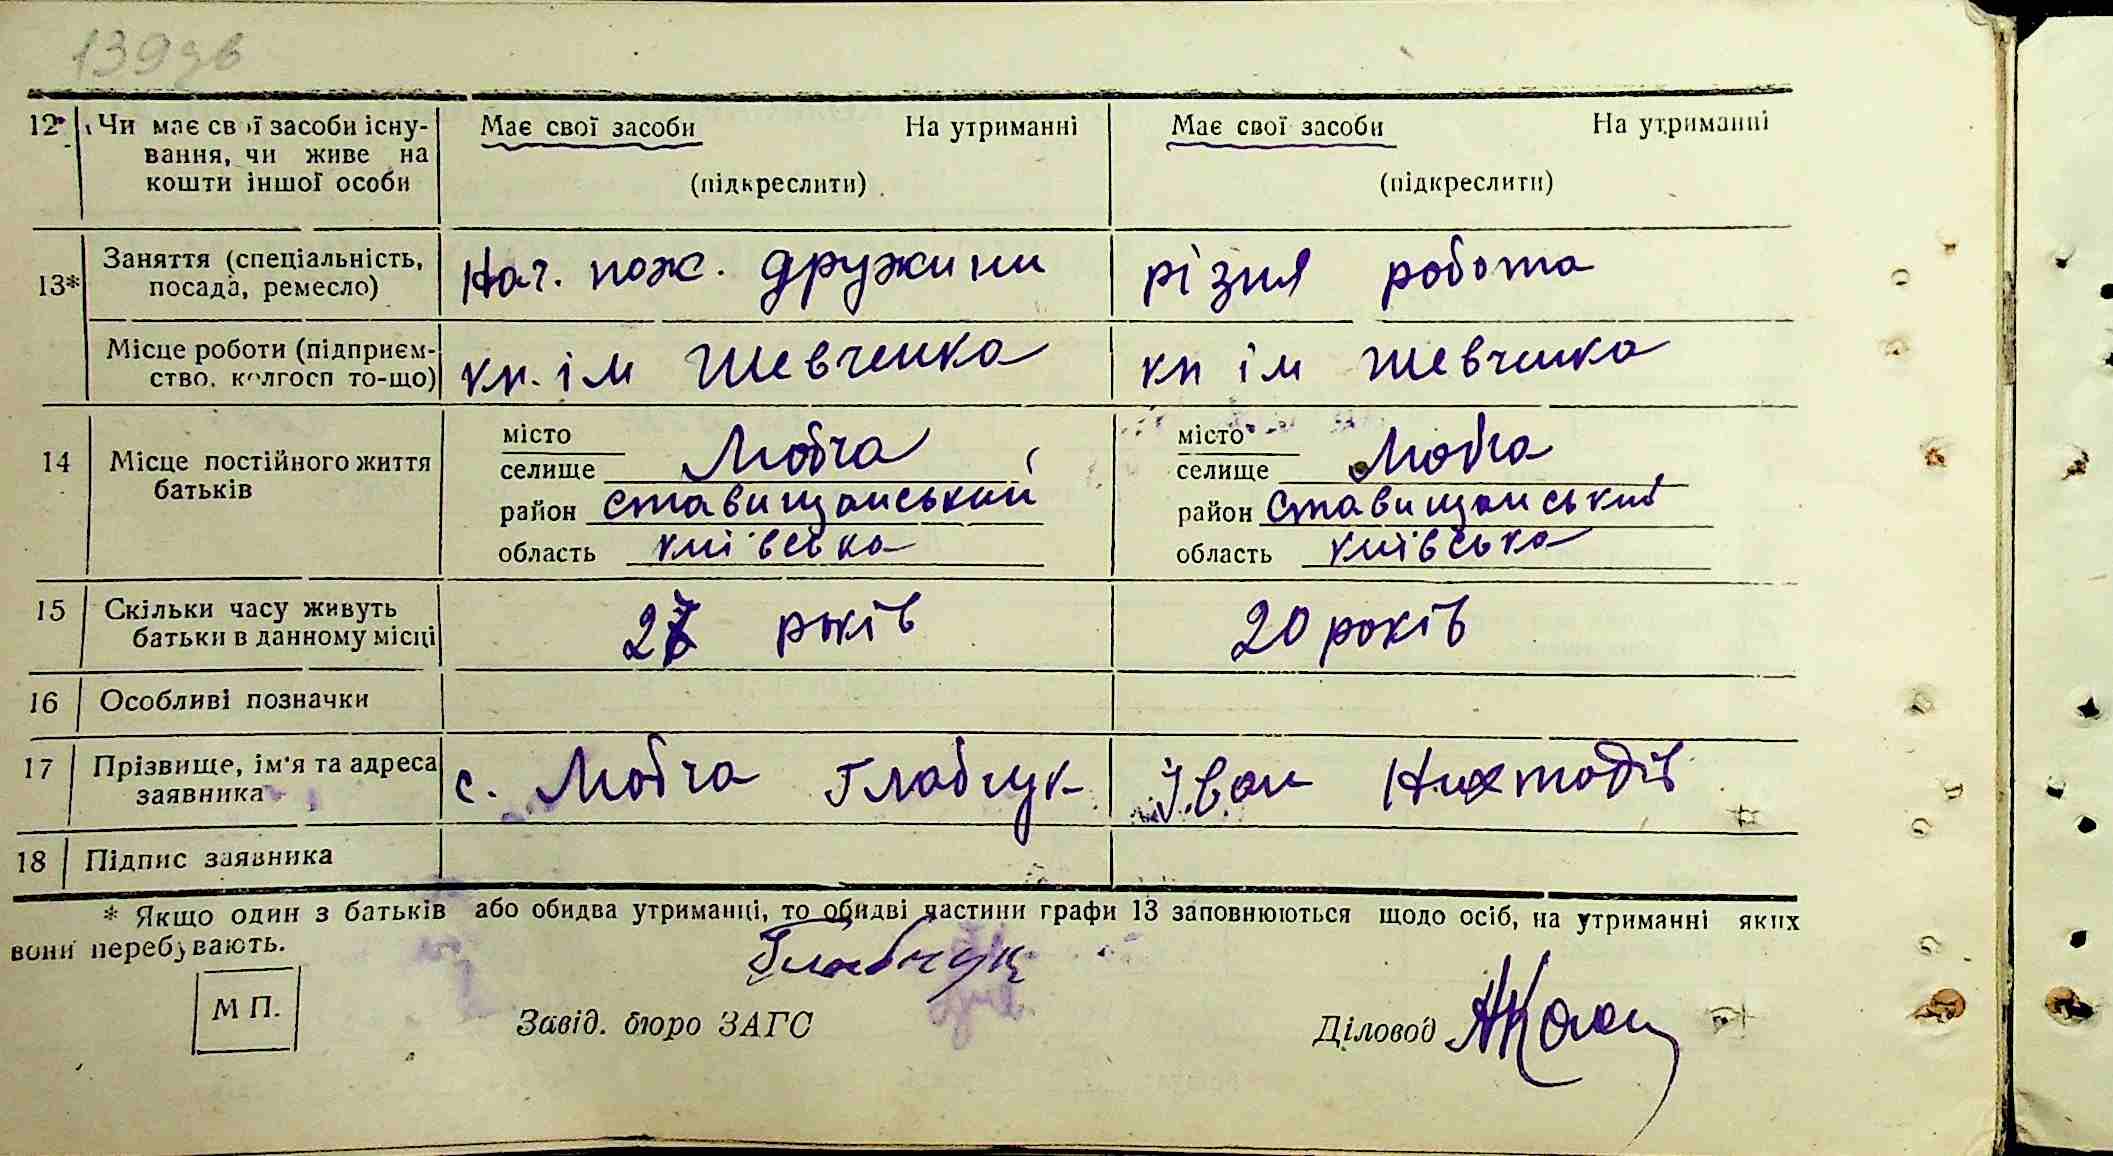 139зв
12* Чи має свої засоби існу- Має свої засоби На утриманні Має свої засоби На утриманні
вання, чи живе на
кошти іншої особи (підкреслити) (підкреслити)
13* Заняття (спеціальність, Нач. пож. дружини різня робота
посада, ремесло)
Місце роботи (підприєм- кп. ім Шевченка кп ім Шевченка
ство, колгосп то-що)
14 Місце постійного життя місто місто
батьків селище Любча селище Любча
район Ставищанський район Ставищанський
область київська область київська
15 Скільки часу живуть 27 років 20 років
батьки в данному місці
16 Особливі позначки
17 Прізвище, ім'я та адреса с. Любча Глабчук Іван
заявника
18 Підпис заявника
* Якщо один з батьків або обидва утриманці, то обидві частини графи 13 заповнюються щодо осіб, на утриманні яких
вони перебувають.
Глабчук
М П.
Завід. бюро ЗАГС Діловод